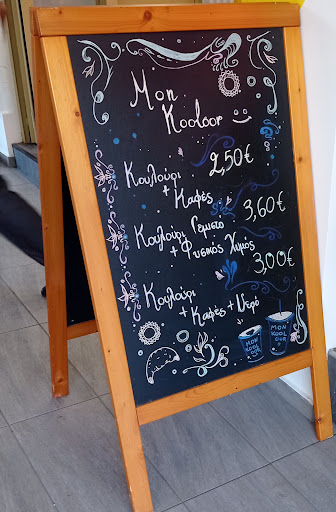 Mon
Kooloor
Κουλούρι 2,50€
+ Καφές
Κουλούρι Γεμιστό 3,60€
+ Φυσικός Χυμός
3,00€
Κουλούρι
+ Καφές + Νερό
MON
KOOL
OUR
MON
KOOL
OUR